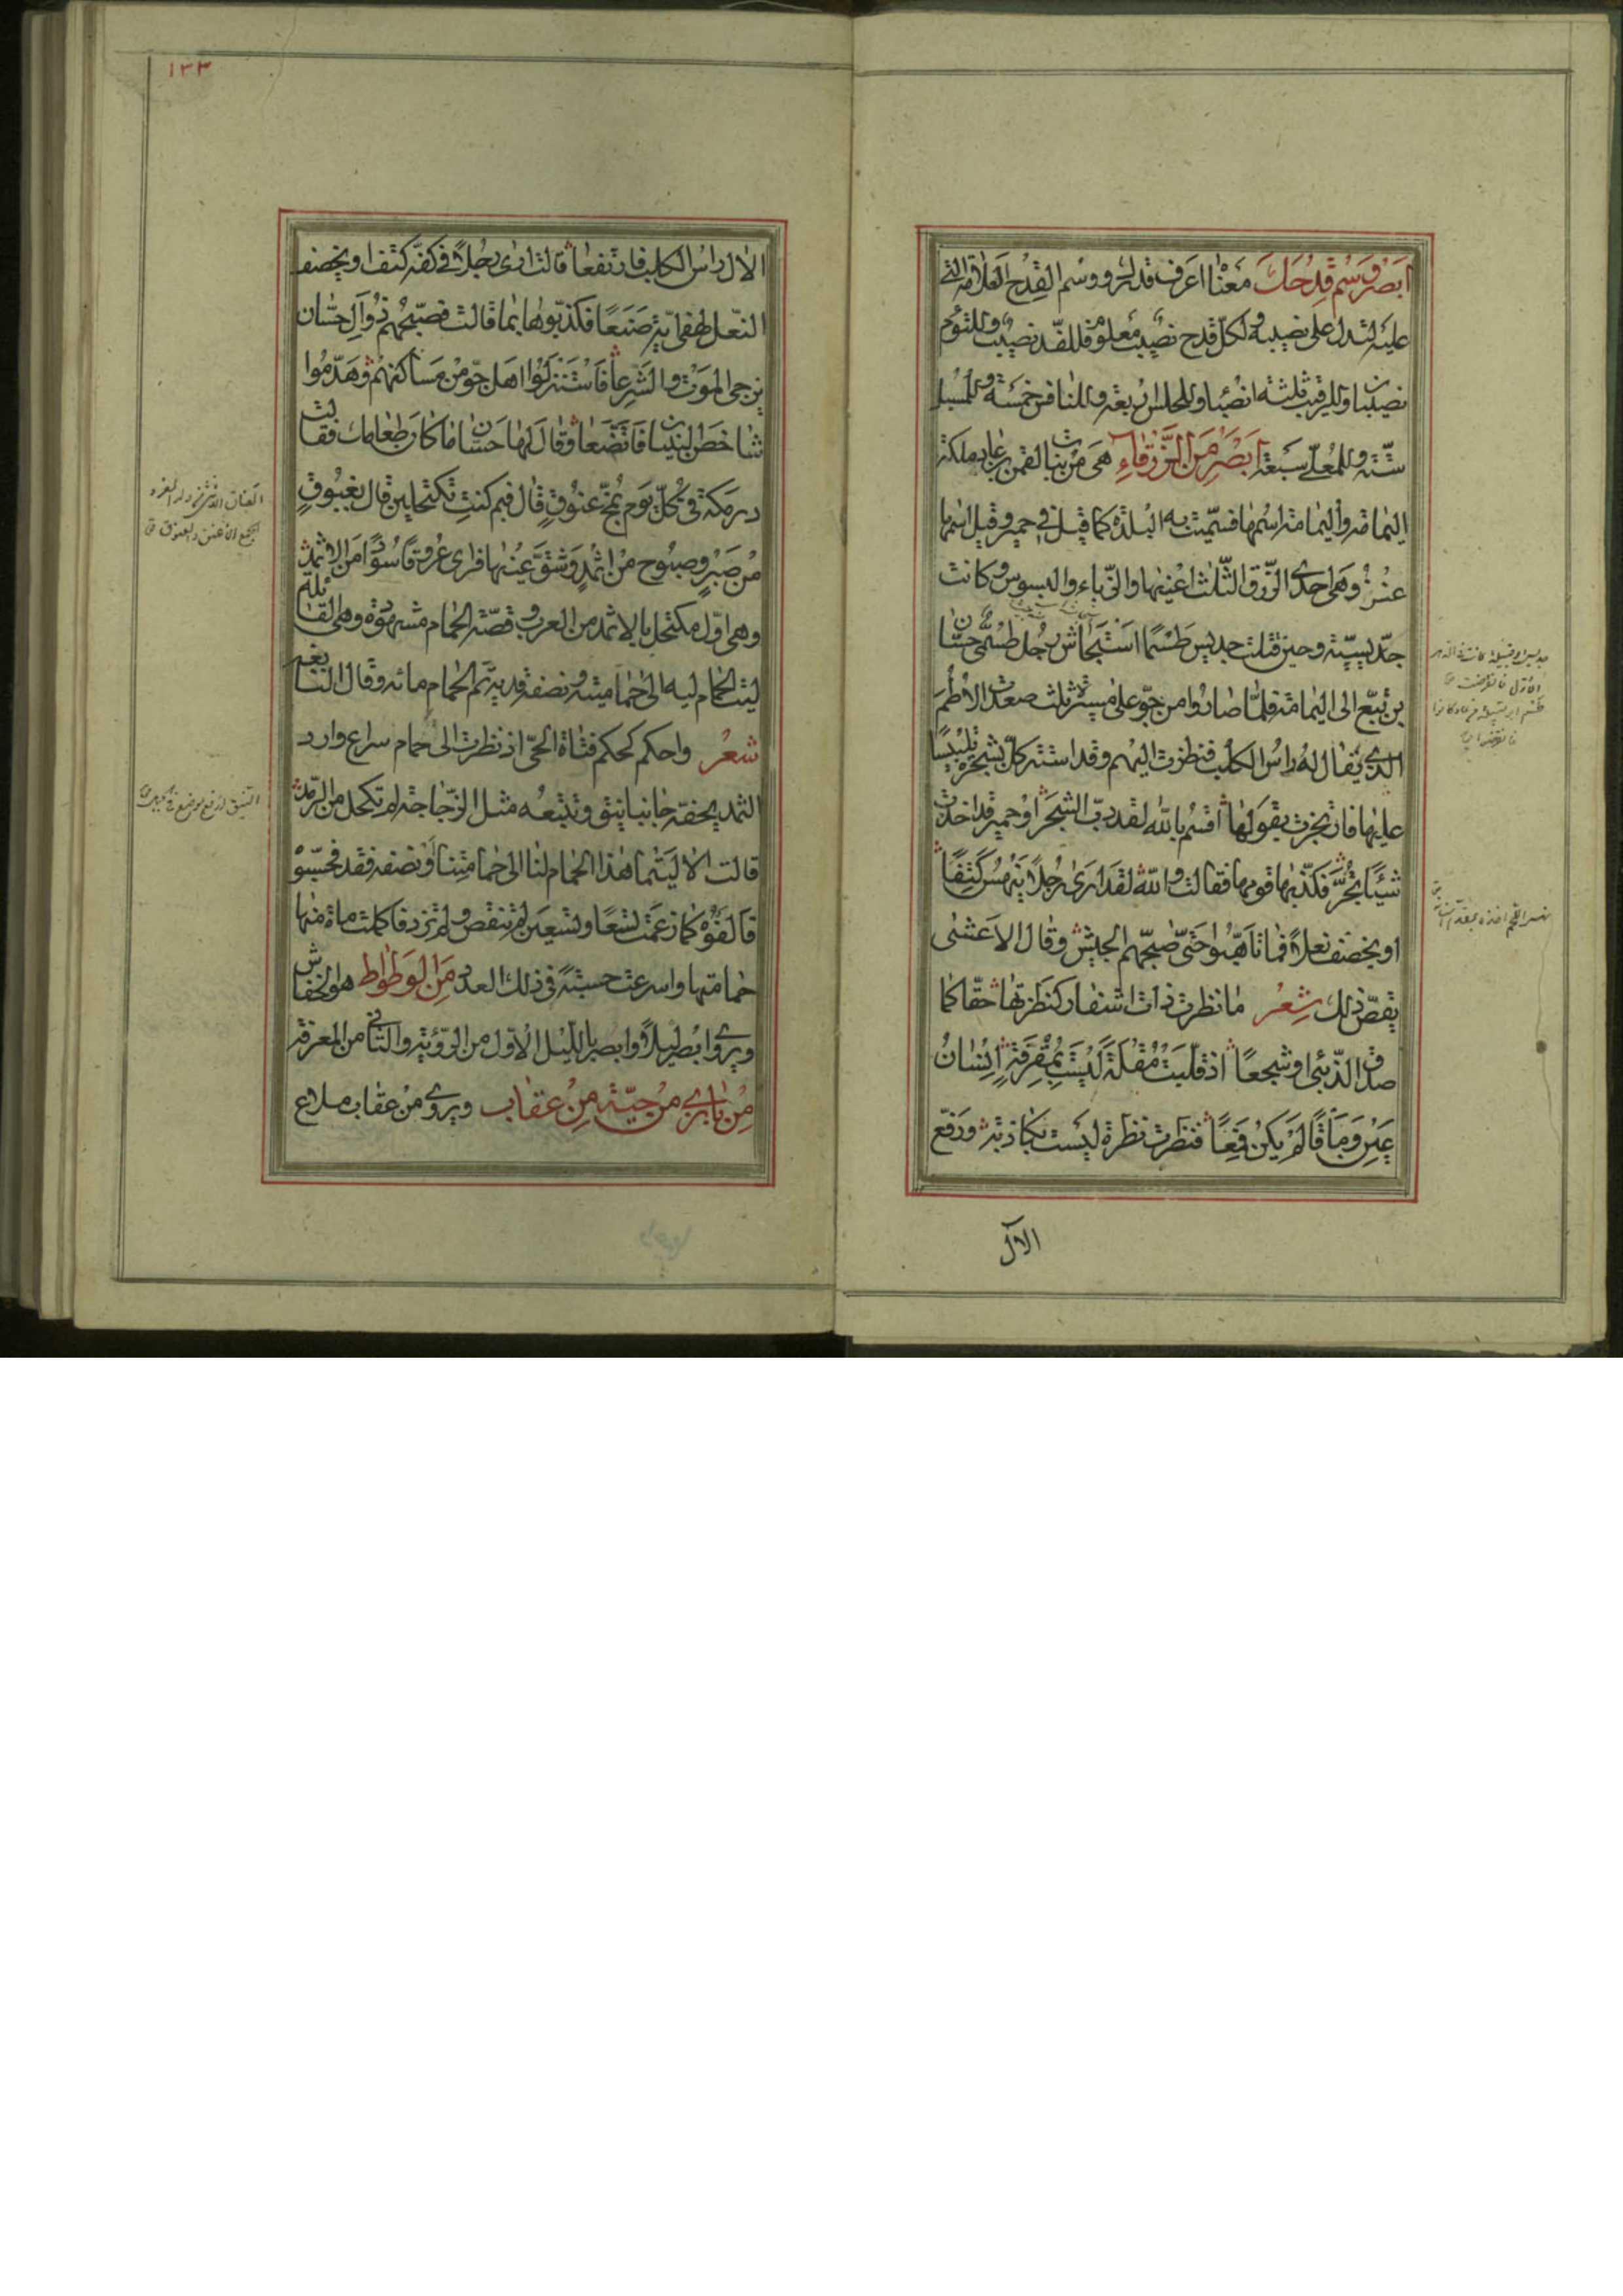 ابصر وسم قدحك معناه اعرف قدرك ووسم القدح العلامة التي
عليه لتدل على نصيبه ولكل قدح نصيب معلوم فللفذ نصيب وللتوءم
نصيبان وللرقيب ثلثة انصباء وللحلس اربعة وللنافس خمسة وللمسبل
ستة وللمعلى سبعة ابصر من الزرقاء هي من بنات لقمن بن عاد ملكة
اليمامة واليمامة اسمها فسميت به البلدة كما قيل في حمير وقيل اسمها
عنز وهي احدى الزرق الثلث اعينها والزباء والبسوس وكانت
جديسية وحين قتلت جديس طسما استجاش رجل طسمى حسان
بن تبع الى اليمامة فلما صاروا من جو على مسيرة ثلث صعدت الاطم
الذي يقال له راس الكلب فنظرت اليهم وقد استتر كل بشجرة تلبيسا
عليها فارتجزت بقولها اقسم بالله لقد دب الشجر او حمير قد اخذت
شيئا يجر فكذبها قومها فقالت والله لقد ارى رجلا ينهس كتفا
او يخصف نعلا فما تاهبوا حتى صبحهم الجيش وقال الاعشى
يقص ذلك شعر ما نظرت ذات اشفار كنظرتها حقا كما
صدق الذئبي او شجعا اذ قلبت مقلة ليست بمقرفة انسان
عين وماقا لم يكن قمعا فنظرت نظرة ليست بكاذبة ورفع
الآل
١٣٣
الال راس الكلب فارتفعا قالت ارى رجلا في كفه كتف او يخصف
النعل لهفى اية صنعا فكذبوها بما قالت فصبحهم ذو آل حسان
يزجى الموت والشرعا فاستنزلوا اهل جو من مساكنهم وهدموا
شاخص البنيان فاتضعا وقال لها حسان ما كان طعامك فقالت
درمكة في كل يوم بمخ عنوق قال فبم كنت تكتحلين قال بغبوق
من صبر وصبوح من اثمد وشق عينها فراى عروقا سودا من الاثمد
وهي اول مكتحل بالاثمد من العرب وقصة الحمام مشهورة وهي القائلة
ليت الحمام ليه الى حمامتيه ونصفه قديه تم الحمام مائه وقال النابغة
شعر واحكم كحكم فتاة الحي اذ نظرت الى حمام سراع وارد
الثمد يحفه جانبا نيق وتتبعه مثل الزجاجة لم تكحل من الرمد
قالت الا ليتما هذا الحمام لنا الى حمامتنا او نصفه فقد فحسبوه
فالفوه كما زعمت تسعا وتسعين لم تنقص ولم تزد فاكملت مائة منها
حمامتها واسرعت حسبة في ذلك العدد من الوطواط هو الخفاش
ويروى ابصر ليلا وابصر بالليل الاول من الرؤية والثاني من المعرفة
من بازي من حية من عقاب ويروى من عقاب ملاع